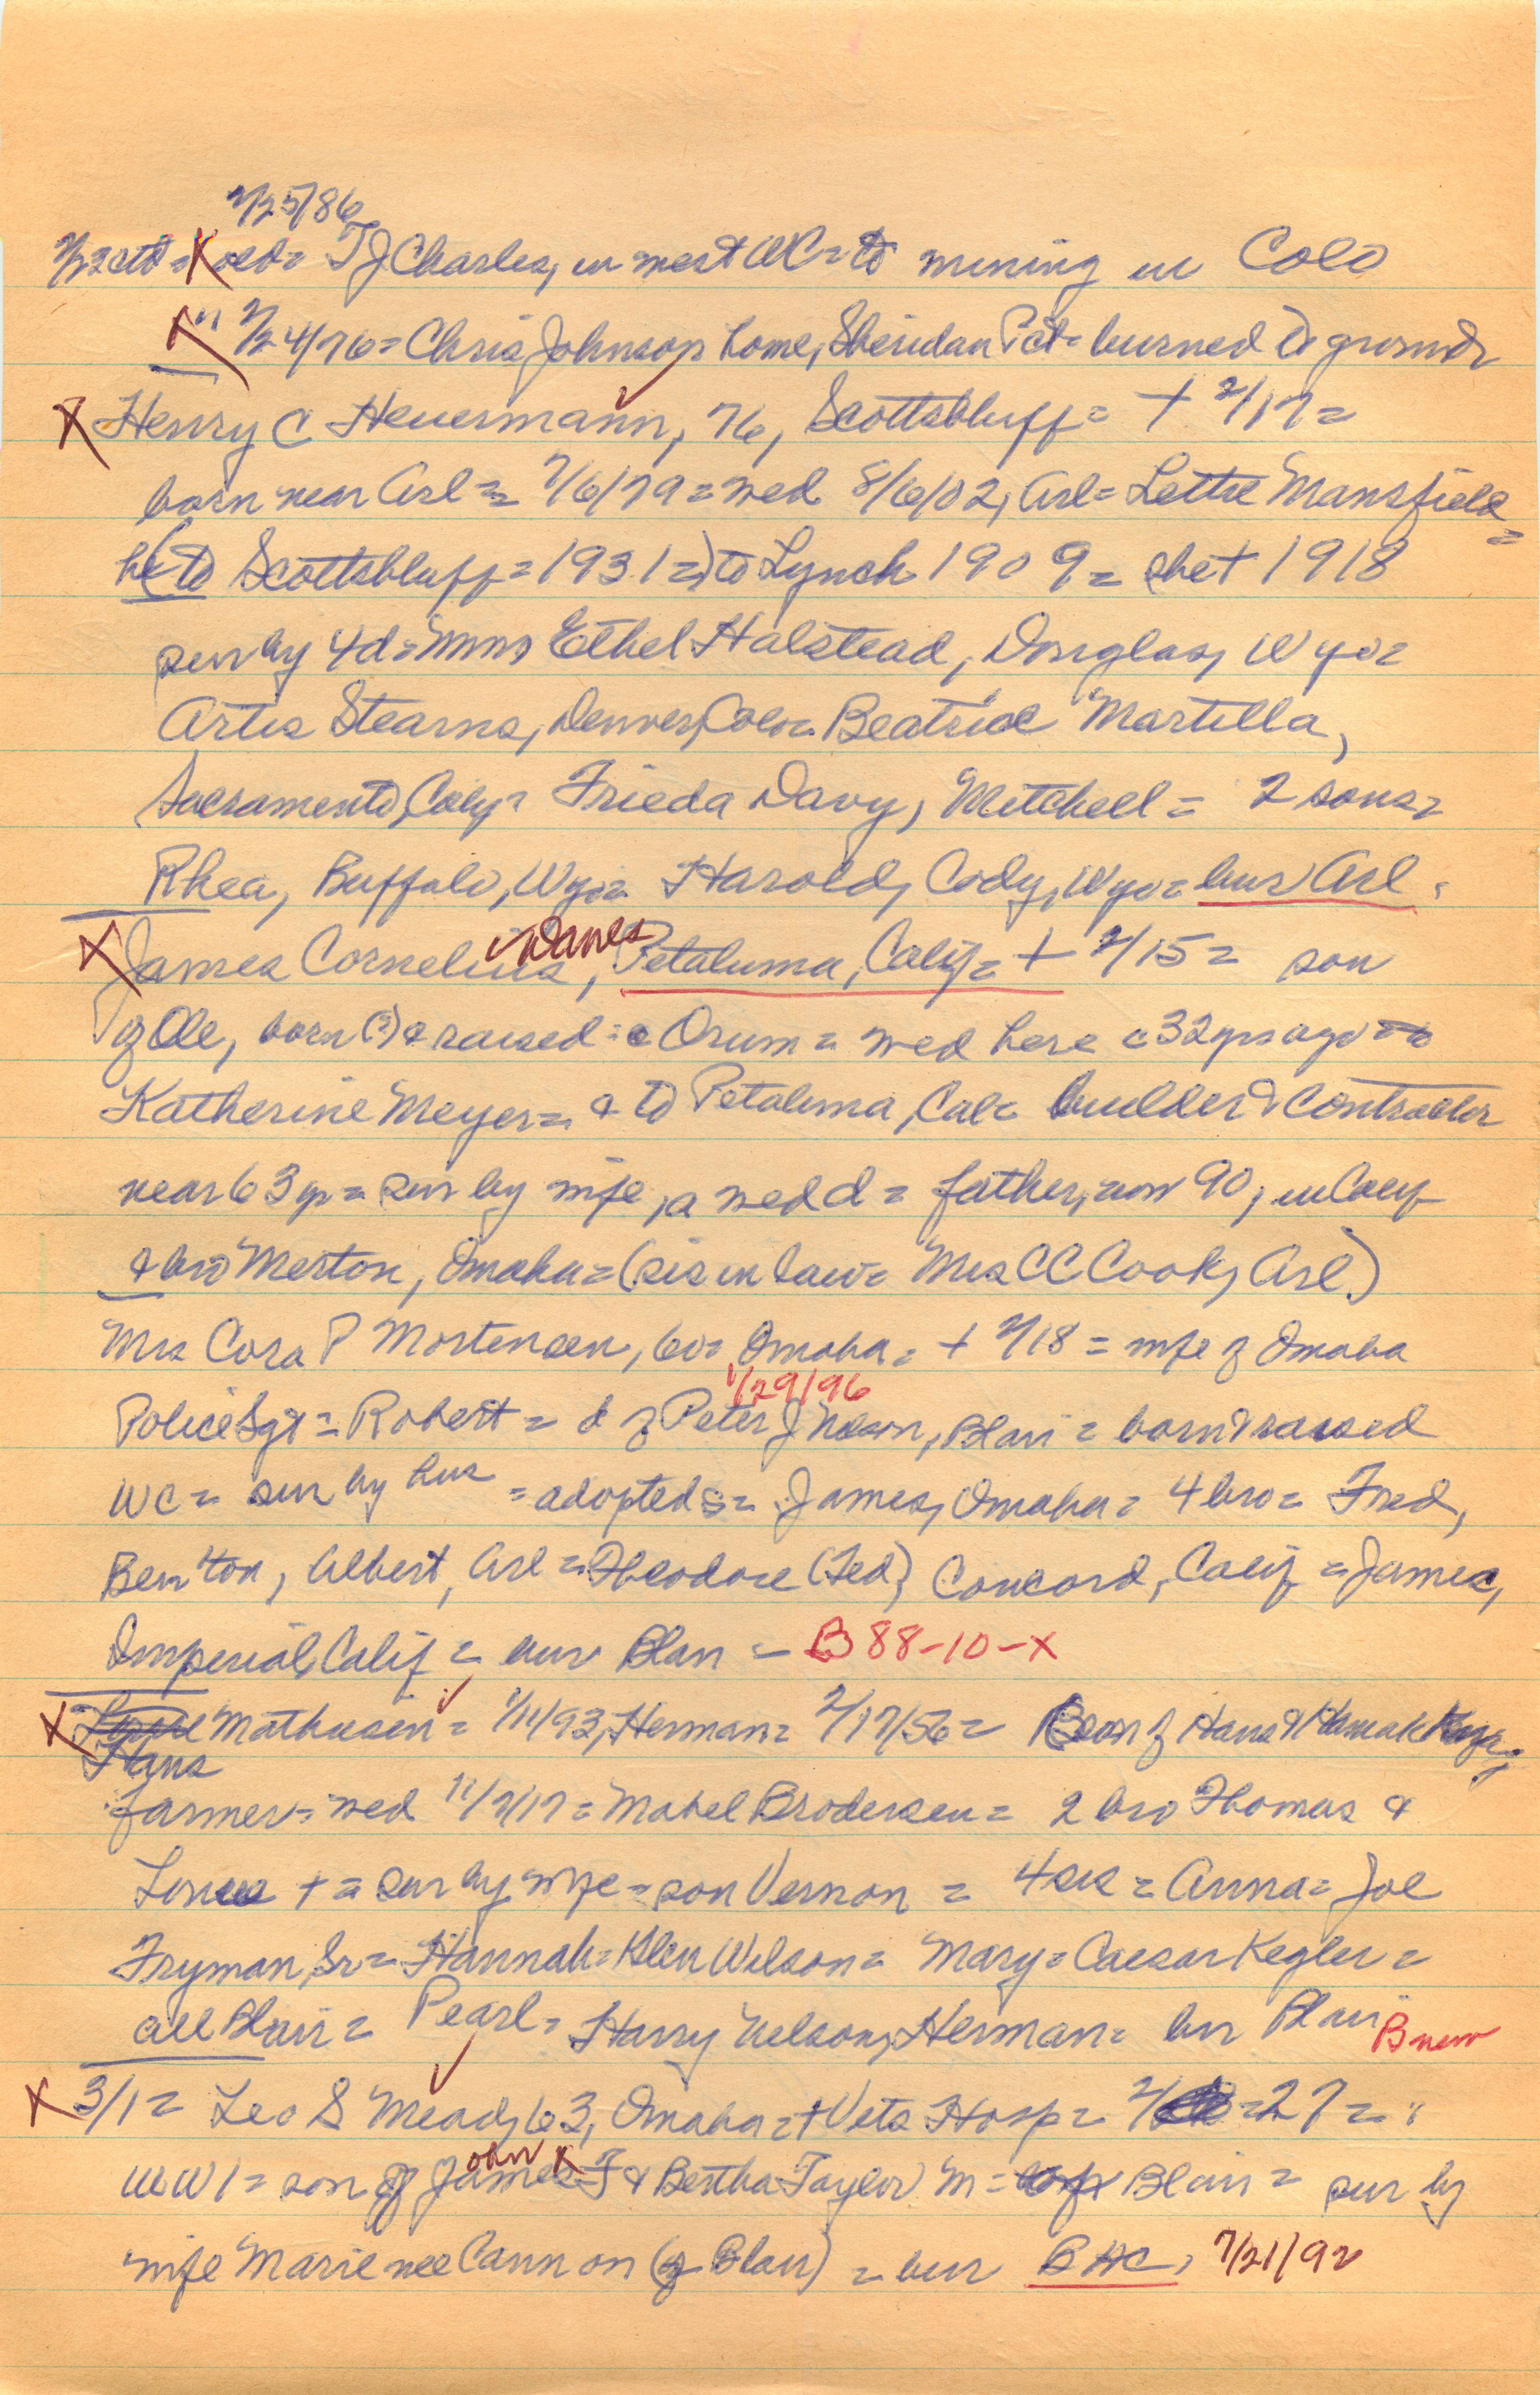 2/25/86
2/22 ctd = X old = TJ Charles, in west WC = to mining in Colo
X " 2/24/76 = Chris Johnson home, Sheridan Pct = burned to ground
X Henry C Heuermann, 76, Scottsbluff = + 2/17 =
born near Arl = 7/6/79 = wed 8/6/02, Arl = Lettie Mansfield =
he (to Scottsbluff = 1931 =) to Lynch 1909 = she + 1918
sur by 4d = Mmes Ethel Halstead, Douglas, Wyo =
Artis Stearns, Denver, Colo = Beatrice Martilla,
Sacramento, Calif = Frieda Davy, Mitchell = 2 sons =
Rhea, Buffalo, Wyo = Harold, Cody, Wyo = bur Arl.
Danes
X James Cornelius, Petaluma, Calif = + 2/15 = son
of Ole, born (?) & raised = c Orum = wed here c 32 yrs ago =
Katherine Meyer = & to Petaluma, Cal = builder & contractor
near 63 yr = sur by wife, a wed d = father, now 90, in Calif
& bro Merton, Omaha = (sis in law = Mrs CC Cook, Arl)
Mrs Cora P Mortensen, 60 = Omaha = + 2/18 = wife of Omaha
1/29/96
Police Sgt = Robert = d of Peter J Nelson, Blair = born & raised
WC = sur by hus = adopted s = James, Omaha = 4 bro = Fred,
Benton, Albert, Arl = Theodore (Ted), Concord, Calif = James,
Imperial, Calif = bur Blair = B 88-10-X
X Mathiesen = 1/11/93, Herman = 2/17/56 = son of Hans &
Hans
farmer = wed 11/7/17 = Mabel Brodersen = 2 bro Thomas &
Louis + = sur by wife = son Vernon = 4 sis = Anna = Joe
Fryman, Sr = Hannah = Glen Wilson = Mary = Caesar Kegler =
all Blair = Pearl = Harry Nelson, Herman = bur Blair B new
X 3/1 = Leo S Mead, 63, Omaha = + Vets Hosp = 2/27 =
John X
WW1 = son of James F & Bertha Taylor M = Blair = sur by
wife Marie nee Cannon (of Blair) = bur BHC, 7/21/92